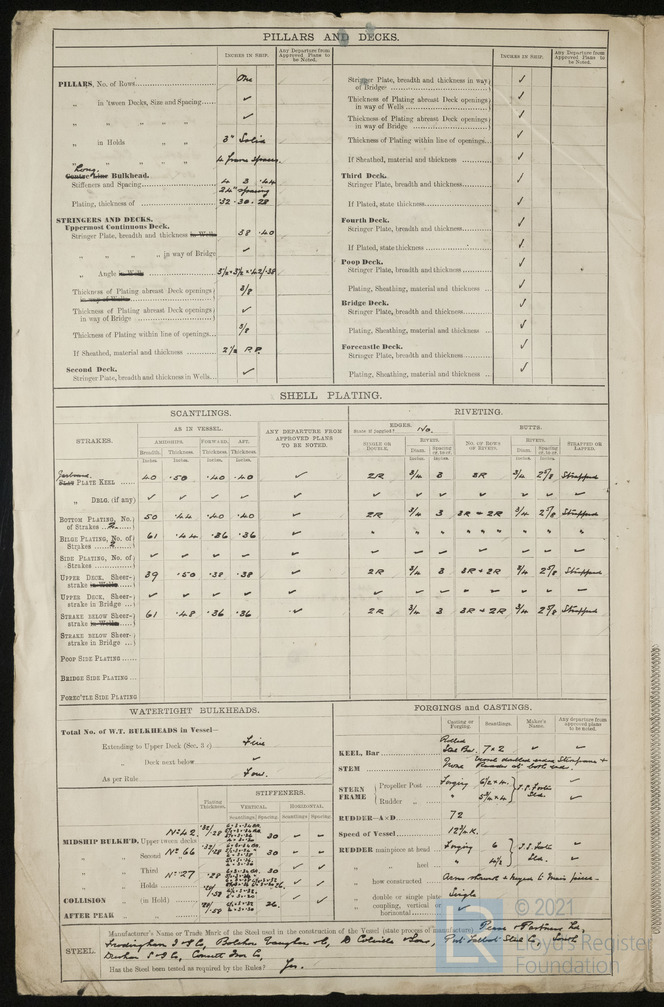 PILLARS AND DECKS.
INCHES IN SHIP.
Any Departure from Approved Plans to be Noted.
PILLARS, No. of Rows One
„ in 'tween Decks, Size and Spacing ✓
„ „ „ „ ✓
„ in Holds „ „ 3" Solid
„ „ „ „ 4 frame spaces.
Long.
Centre Line Bulkhead.
Stiffeners and Spacing 4 3 .44
24" spacing
Plating, thickness of .32 .30 .28
STRINGERS AND DECKS.
Uppermost Continuous Deck.
Stringer Plate, breadth and thickness in Wells 58 .40
„ „ „ „ in way of Bridge ✓
„ Angle in Wells
Thickness of Plating abreast Deck openings in way of Wells 3/8
Thickness of Plating abreast Deck openings in way of Bridge ✓
Thickness of Plating within line of openings 3/8
If Sheathed, material and thickness 2½ P.P.
Second Deck.
Stringer Plate, breadth and thickness in Wells ✓
INCHES IN SHIP.
Any Departure from Approved Plans to be Noted.
Stringer Plate, breadth and thickness in way of Bridge ✓
Thickness of Plating abreast Deck openings in way of Wells ✓
Thickness of Plating abreast Deck openings in way of Bridge ✓
Thickness of Plating within line of openings ✓
If Sheathed, material and thickness ✓
Third Deck.
Stringer Plate, breadth and thickness ✓
If Plated, state thickness ✓
Fourth Deck.
Stringer Plate, breadth and thickness ✓
If Plated, state thickness ✓
Poop Deck.
Stringer Plate, breadth and thickness ✓
Plating, Sheathing, material and thickness ✓
Bridge Deck.
Stringer Plate, breadth and thickness ✓
Plating, Sheathing, material and thickness ✓
Forecastle Deck.
Stringer Plate, breadth and thickness ✓
Plating, Sheathing, material and thickness ✓
SHELL PLATING.
SCANTLINGS.
RIVETING.
STRAKES.
AS IN VESSEL.
AMIDSHIPS. FORWARD. AFT.
Breadth. Thickness. Thickness. Thickness.
Inches. Inches. Inches. Inches.
ANY DEPARTURE FROM APPROVED PLANS TO BE NOTED.
EDGES.
State if joggled? No.
SINGLE OR DOUBLE.
RIVETS.
Diam. Spacing cr. to cr.
Inches. Inches.
BUTTS.
No. OF ROWS OF RIVETS.
RIVETS.
Diam. Spacing cr. to cr.
Inches. Inches.
STRAPPED OR LAPPED.
Garboard
Flat PLATE KEEL 40 .50 .40 .40 ✓ 2R 3/4 3 3R 3/4 2 5/8 Strapped
„ DBLG. (if any) ✓ ✓ ✓ ✓ ✓ ✓ ✓ ✓ ✓ ✓ ✓ ✓
BOTTOM PLATING, No. of Strakes 2 50 .44 .40 .40 ✓ 2R 3/4 3 3R - 2R 3/4 2 5/8 Strapped
BILGE PLATING, No. of Strakes 2 61 .44 .36 .36 ✓ „ „ „ „ „ „ „ „
SIDE PLATING, No. of Strakes ✓ ✓ ✓ ✓ ✓ ✓ ✓ ✓ ✓ ✓ ✓ ✓
UPPER DECK, Sheer-strake in Wells 39 .50 .38 .38 ✓ 2R 3/4 3 3R - 2R 3/4 2 5/8 Strapped
UPPER DECK, Sheer-strake in Bridge ✓ ✓ ✓ ✓ ✓ ✓ ✓ ✓ ✓ ✓ ✓ ✓
STRAKE BELOW Sheer-strake in Wells 61 .48 .36 .36 ✓ 2R 3/4 3 3R - 2R 3/4 2 5/8 Strapped
STRAKE BELOW Sheer-strake in Bridge
POOP SIDE PLATING
BRIDGE SIDE PLATING
FOREC'TLE SIDE PLATING
WATERTIGHT BULKHEADS.
Total No. of W.T. BULKHEADS in Vessel—
Extending to Upper Deck (Sec. 3 c) Five
„ Deck next below ✓
As per Rule Four.
Plating Thickness.
STIFFENERS.
VERTICAL. HORIZONTAL.
Scantlings Spacing Scantlings Spacing
MIDSHIP BULKH'D, Upper tween decks No 42 30
„ „ Second „ No 66 30
„ „ Third „ No 27 .28 30
„ „ Holds
COLLISION (in Hold)
AFTER PEAK „
FORGINGS and CASTINGS.
Casting or Forging.
Scantlings.
Maker's Name.
Any departure from Approved plans to be noted.
KEEL, Bar Rolled Steel Bar. 7 x 2 ✓ ✓
STEM None
STERN FRAME
Propeller Post Forging 6½ x 4
Rudder „ „
RUDDER—A×D 72
Speed of Vessel 12½ K.
RUDDER mainpiece at head Forging 6
„ „ heel „ 4½
„ how constructed Arms shrunk & keyed to main piece
„ double or single plate Single
„ coupling, vertical or horizontal ✓
STEEL.
Manufacturer's Name or Trade Mark of the Steel used in the construction of the Vessel (state process of manufacture)
Frodingham I & S Co, Bolckow Vaughan & Co, D Colville & Sons, Port Talbot Steel Co, South
Durham S & I Co, Consett Iron Co,
Has the Steel been tested as required by the Rules? Yes.
© 2021
LR
Lloyd's Register
Foundation